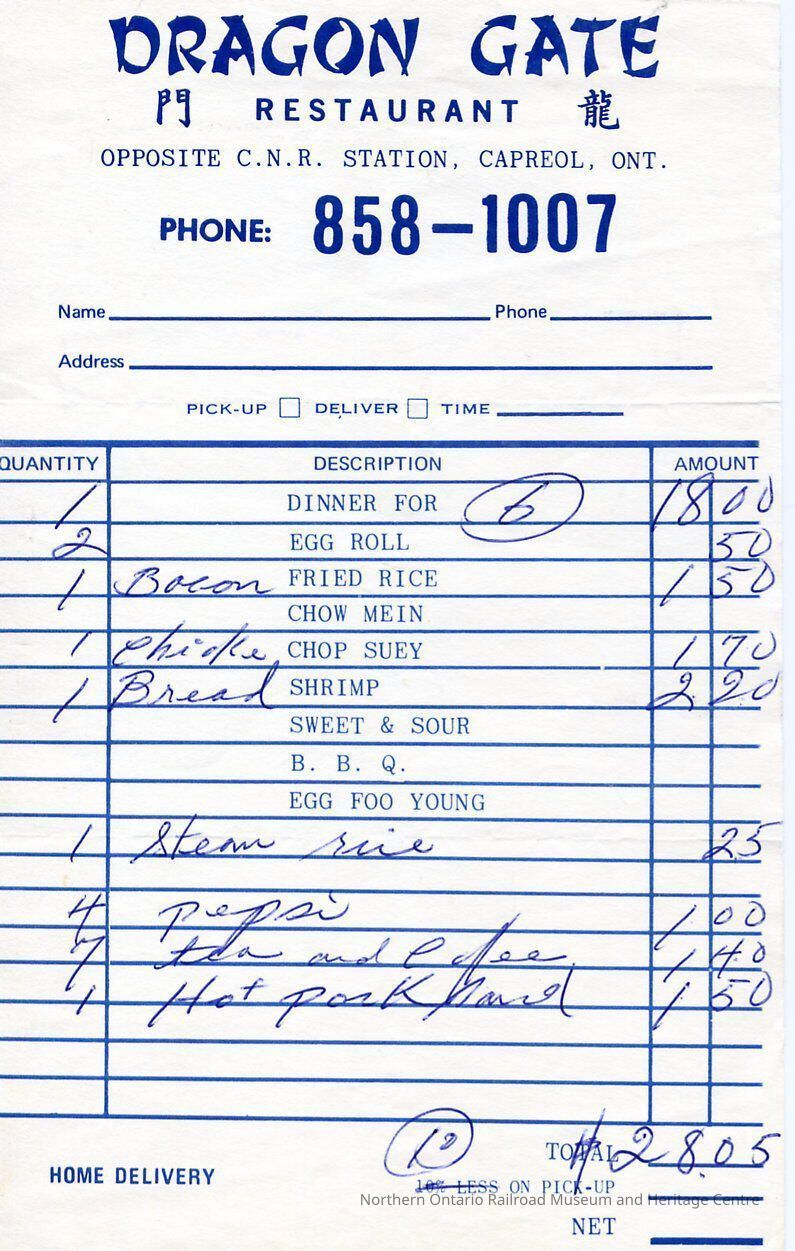 DRAGON GATE
門 RESTAURANT 龍
OPPOSITE C.N.R. STATION, CAPREOL, ONT.
PHONE: 858-1007
Name Phone
Address
PICK-UP DELIVER TIME
QUANTITY DESCRIPTION AMOUNT
1 DINNER FOR 6 18 00
2 EGG ROLL 50
1 Bacon FRIED RICE 1 50
CHOW MEIN
1 Chicke CHOP SUEY 1 70
1 Bread SHRIMP 2 20
SWEET & SOUR
B. B. Q.
EGG FOO YOUNG
1 Steam rice 25
4 pepsi 1 00
7 tea and Coffee 1 40
1 Hot pork 1 50
TOTAL $28.05
HOME DELIVERY
10% LESS ON PICK-UP
Northern Ontario Railroad Museum and Heritage Centre
NET